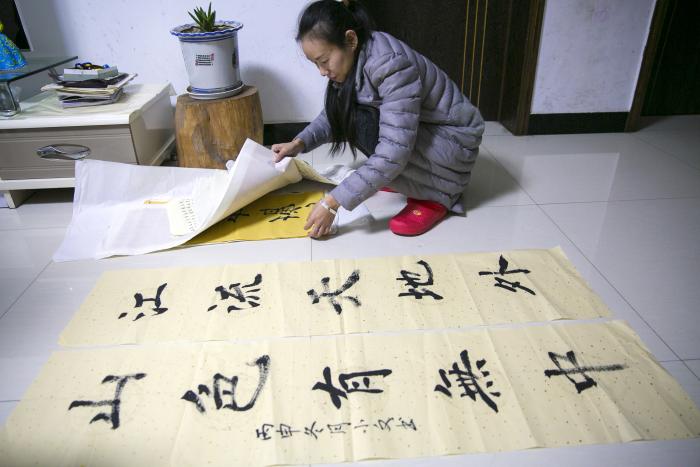 江流天地外
山色有無中
丙申冬